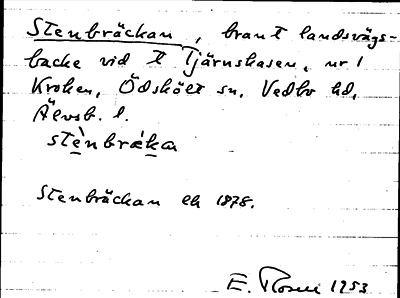 Stenbräckan, brant landsvägs-
backe vid t Tjärnshasen, nr 1
Kroken, Ödskölt sn, Vedbo hd,
Älvsb. l.
stènbrǽka
Stenbräckan ek 1878.
E. 1953